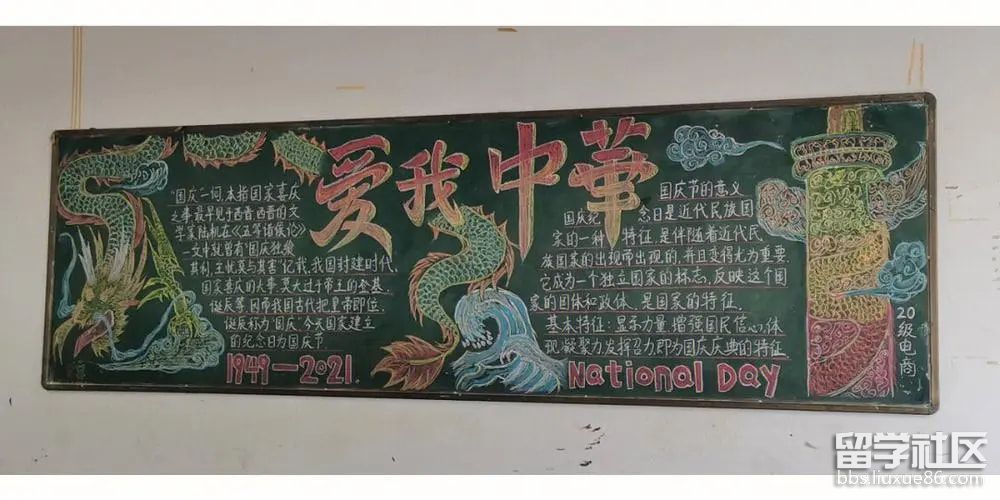 爱我中華
"国庆"一词,本指国家喜庆
之事最早见于西晋,西晋的文
学家陆机在《五等诸侯论》
一文中就曾有"国庆独飨
其利,主忧莫与其害"记载,我国封建时代、
国家喜庆的大事,莫大过于帝王的登基、
诞辰等,因而我国古代把皇帝即位、
诞辰称为"国庆",今天国家建立
的纪念日为国庆节.
1949—2021
国庆节的意义
国庆纪念日是近代民族国
家的一种特征,是伴随着近代民
族国家的出现而出现的,并且变得尤为重要.
它成为一个独立国家的标志,反映这个国
家的国体和政体、是国家的特征.
基本特征:显示力量,增强国民信心,体
现凝聚力,发挥召力,即为国庆庆典的特征
National Day
20级电商
留学社区
bbs.liuxue86.com